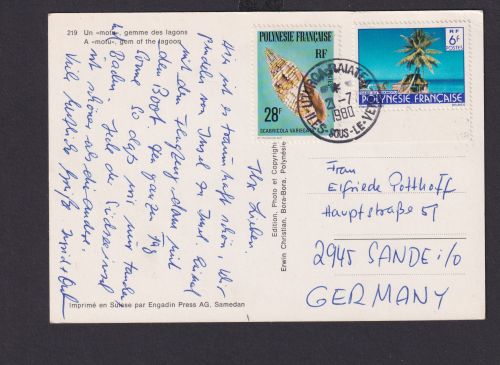 219 Un «motu», gemme des lagons
A «motu», gem of the lagoon
Ihr Lieben.
Hier ist es traumhaft schön, Wir
pendeln von Insel zu Insel. Einmal
mit dem Flugzeug, dann mit
dem Boot. Den ganzen Tag
Sonne so daß wir nur
Baden. Jede der Südseeinsel
ist schöner als die andere.
Viele herzliche Grüße
Imprimé en Suisse par Engadin Press AG, Samedan
Edition, Photo et Copyright
Erwin Christian, Bora-Bora, Polynésie
POLYNESIE FRANÇAISE
RF
28F
SCABRICOLA VARIEGATA
RF
6F
POSTES
POLYNÉSIE FRANÇAISE
UTUROA-RAIATEA
21-7
1980
ILES-SOUS-LE-VENT
Frau
Elfriede Potthoff
Hauptstraße 57
2945 SANDE i/O
GERMANY